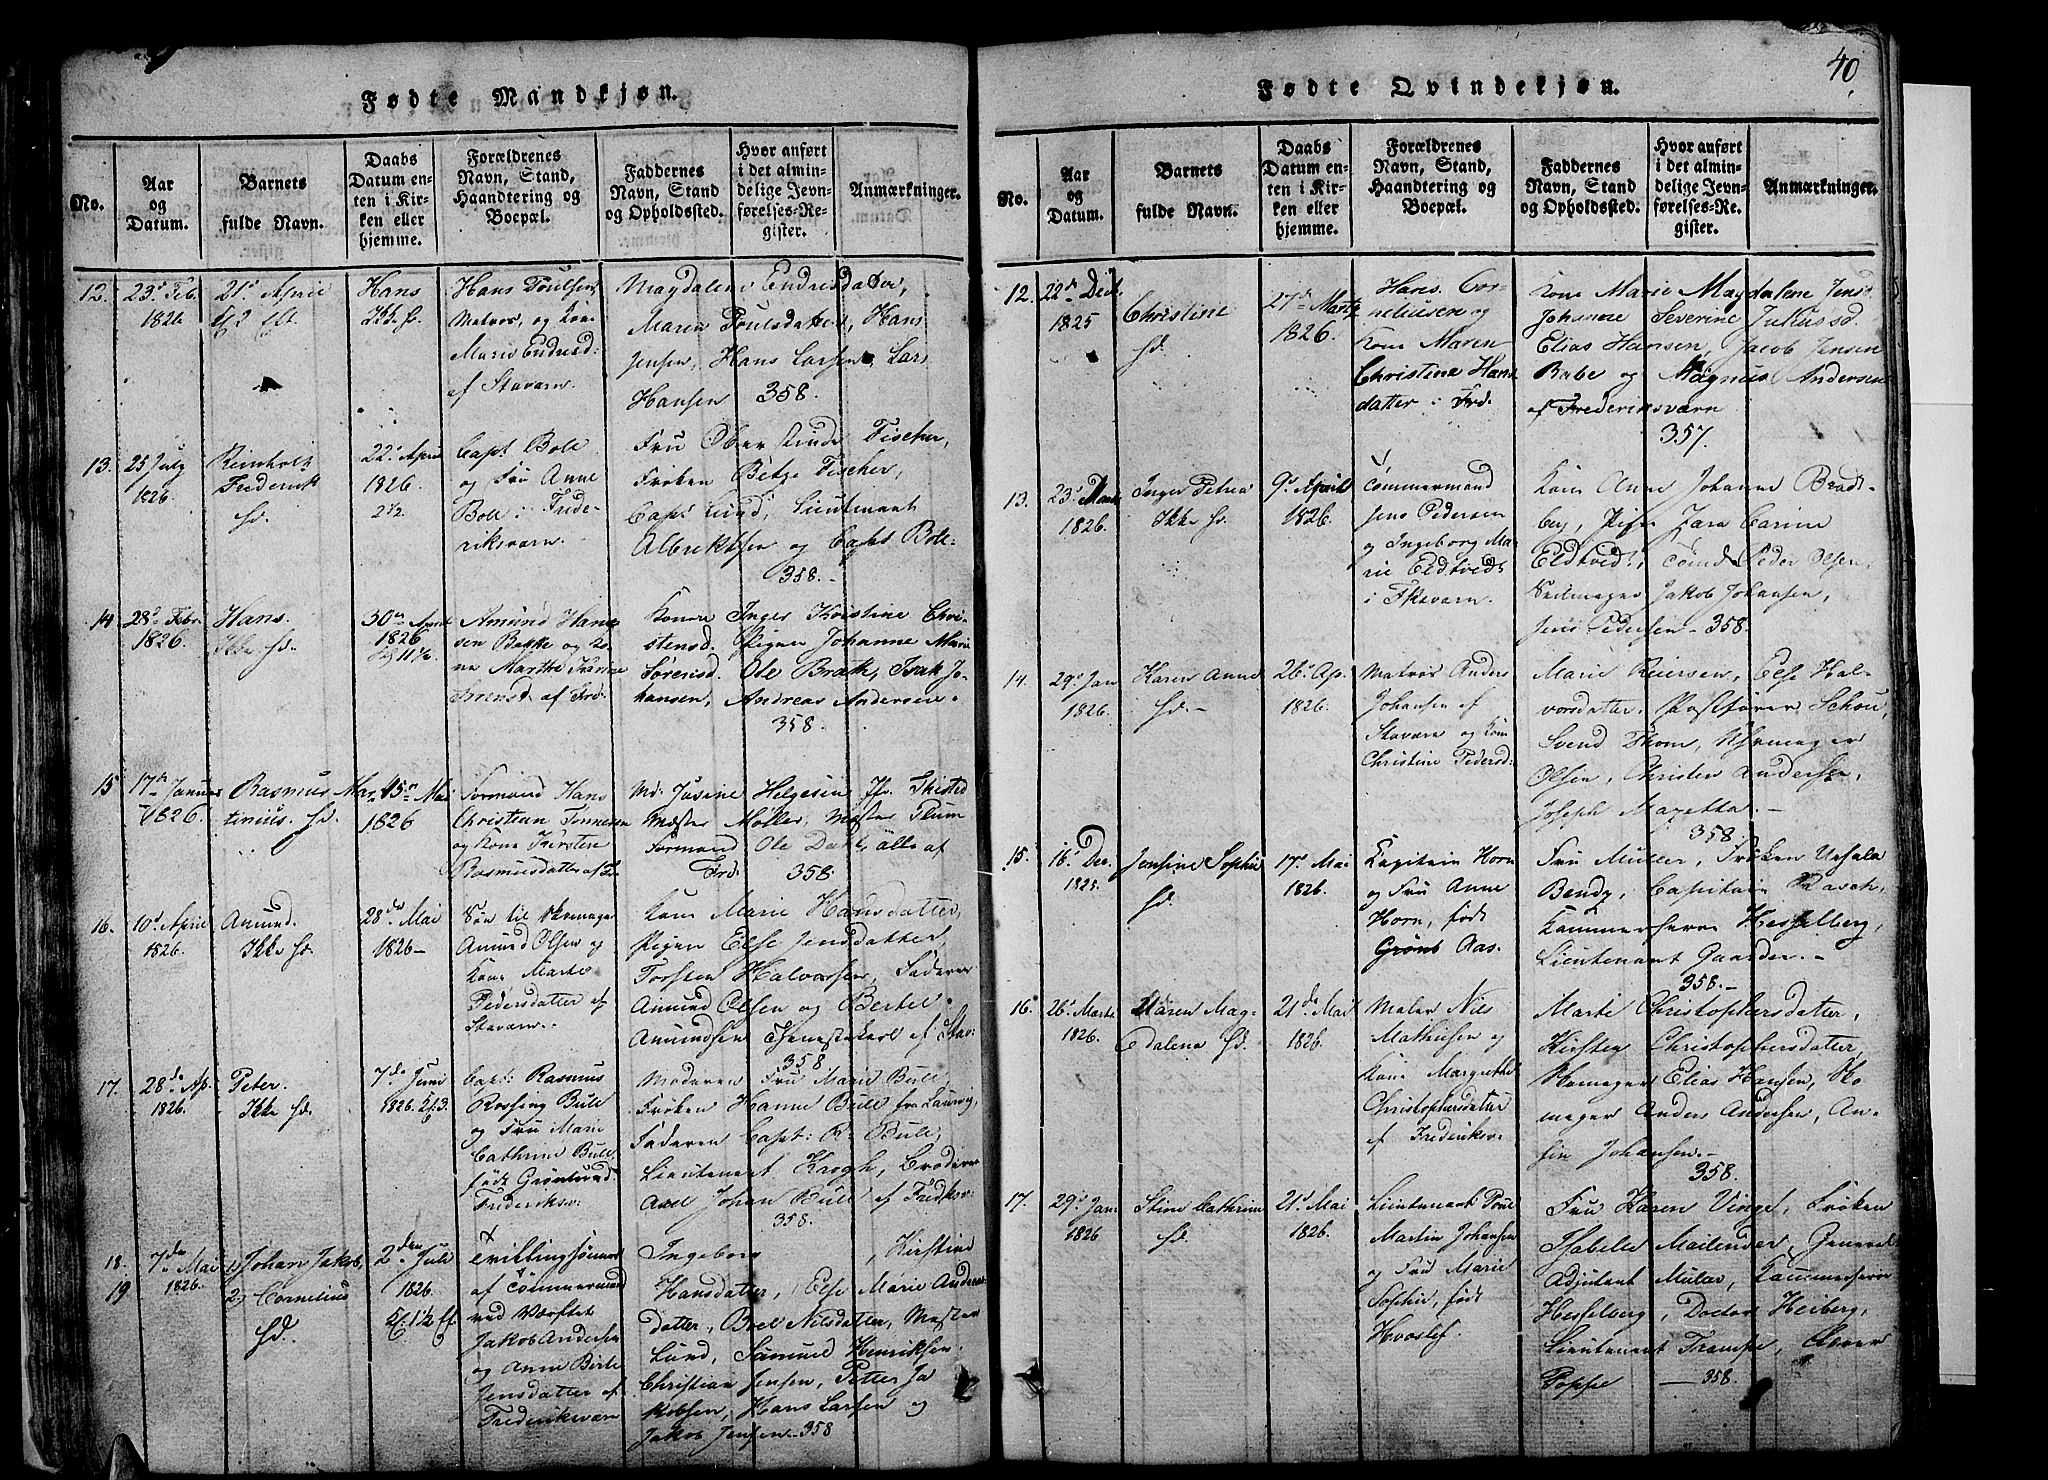 40
Fødte Mandkjøn.
No.
Aar
og
Datum.
Barnets
fulde Navn.
Daabs
Datum en-
ten i Kir-
ken eller
hjemme.
Forældrenes
Navn, Stand,
Haandtering og
Boepæl.
Faddernes
Navn, Stand
og Opholdssted.
Hvor anført
i det almin-
delige Jevn-
førelses-Re-
gister.
Anmærkninger.
12.
1826
Hans
Hans Poulsen,
Matros, og
Marie
af Stavern.
Magdalene Endresdatter,
Maren Poulsdatter, Hans
Jensen, Hans Larsen, Lars
Hansen 358.
13.
25 July
1826.
Reinholt
Frederik
22. April
1826.
Capt Boll
og Fru Anne
Boll i Frede-
riksværn.
Fru Fischer,
Frøken Fischer,
Capt Lund, Lieutnant
og Capt Boll
358.
14
28. Febr.
1826.
Hans.
30
1826
Amund Han-
sen Bakke og Ko-
na Marthe Karine
af Frd.
Konen Inger Kristine Chri-
stensd. Pigen Johanne Marie
Sørensd. Ole Isak Jo-
hansen, Andreas Andersen
358
15
17 Januar
1826.
Rasmus Mar-
tinius.
15 Mai
1826
Formand Hans
Christian
og Kone Kirsten
Rasmusdatter af
Helgesen
Mester Møller, Mester Plum
Formand Ole Dahl, alle af
Frd. 358
16.
10. April
1826.
Amund.
Ikke
28de Mai
1826
Søn til
Amund Olsen og
Kone Marte
Pedersdatter af
Stavern.
Kone Marie Hansdatter,
Pigen Else Jensdatter,
Torsten Halvorsen, Faderen
Amund Olsen og Bertel
Amundsen Tjenestekarl af Stav-
358
17.
28de Ap.
1826.
Peter.
Ikke
7de Juni
1826.
Capt: Rasmus
Rossing Bull
og Fru Marie
Cathrine Bull,
født Grønlund
Frederiksv.
Moderen Fru Marie Bull
Frøken Hanne Bull fra Laurvig,
Faderen Capt: R. Bull,
Lieutenant Krogh, Broderen
Johan Bull af Fredksv.
358.
18.
19
7de Mai
1826.
1) Johan Jakob,
2) Cornelius
2den Juli
1826.
Tvillingsønner
af Tømmermand
ved Værftet
Jakob Andersen
og Anne Birte
Jensdatter af
Frederiksværn
Ingeborg , Kirstine
Hansdatter, Else Marie Anders-
datter, Boel Nilsdatter, Mester
Lund, Samuel Henriksen,
Christian Jensen, Petter Ja-
kobsen, Hans Larsen og
Jakob Jensen - 358
Fødte Qvindekjøn.
No.
Aar
og
Datum.
Barnets
fulde Navn.
Daabs
Datum en-
ten i Kir-
ken eller
hjemme.
Forældrenes
Navn, Stand,
Haandtering og
Boepæl.
Faddernes
Navn, Stand
og Opholdssted.
Hvor anført
i det almin-
delige Jevn-
førelses-Re-
gister.
Anmærkninger.
12.
1825
Christine
27de Marts
1826.
Hans Cor-
neliusen og
Kone Maren
Christine Hans
datter i Frd.
Kone Marie Magdalene Jensd.
Johanne Severine Juliusd.
Elias Hansen, Jacob Jensen
Babe og Magnus Andersen
af Frederiksværn
357.
13.
23. Marts
1826.
Inger Petrea
Ikke
9. April
1826.
Tømmermand
Jens Pedersen
og Ingeborg Ma-
rie Eldtvedt
i Fksværn.
Kone Anne Johanne Bradt-
berg, Carine
Eldtvedt, Peder Olsen,
Seilmager Jakob Johansen,
Jens Pedersen - 358.
14.
29. Jan
1826.
Karen Anne
26. Ap.
1826.
Matros Anders
Johansen af
Stavern og Kone
Christine Pedersd:
Marie Reiersen, Else Hal-
vorsdatter, Postfører Schou,
Svend Thom,
Olsen, Christen Andersen,
Joseph Mazetta.
358.
15.
16. Dec.
Jensine Sophie
17. Mai
1826.
Kapitain Horn
og Fru Anne
Horn, født
Aas.
Fru Müller, Frøken Ursula
Capitain Rasch,
Kammerherre Hesselberg,
Lieutenant Gaarder.
358.
16.
26. Marts
1826.
Maren Mag-
dalena
21de Mai
1826.
Maler Nils
Mathisen og
Kone Margrethe
Christophersdatter
af Frederiksv.
Marte Christophersdatter,
Kirsten Christophersdatter,
Elias Hansen,
mager Anders Andersen, An-
Johansen.
358.
17.
29. Jan.
1826
Stine Cathrine
21. Mai
1826.
Lieutenant Poul
Martin Johansen
og Fru Marie
Sophie, født
Hvoslef.
Fru Karen Vinge, Frøken
Isabelle Mailender, General
Adjutant Kammerherre
Hesselberg, Doctor Heiberg,
Lieutenant Trampe,
Poppe - 358.